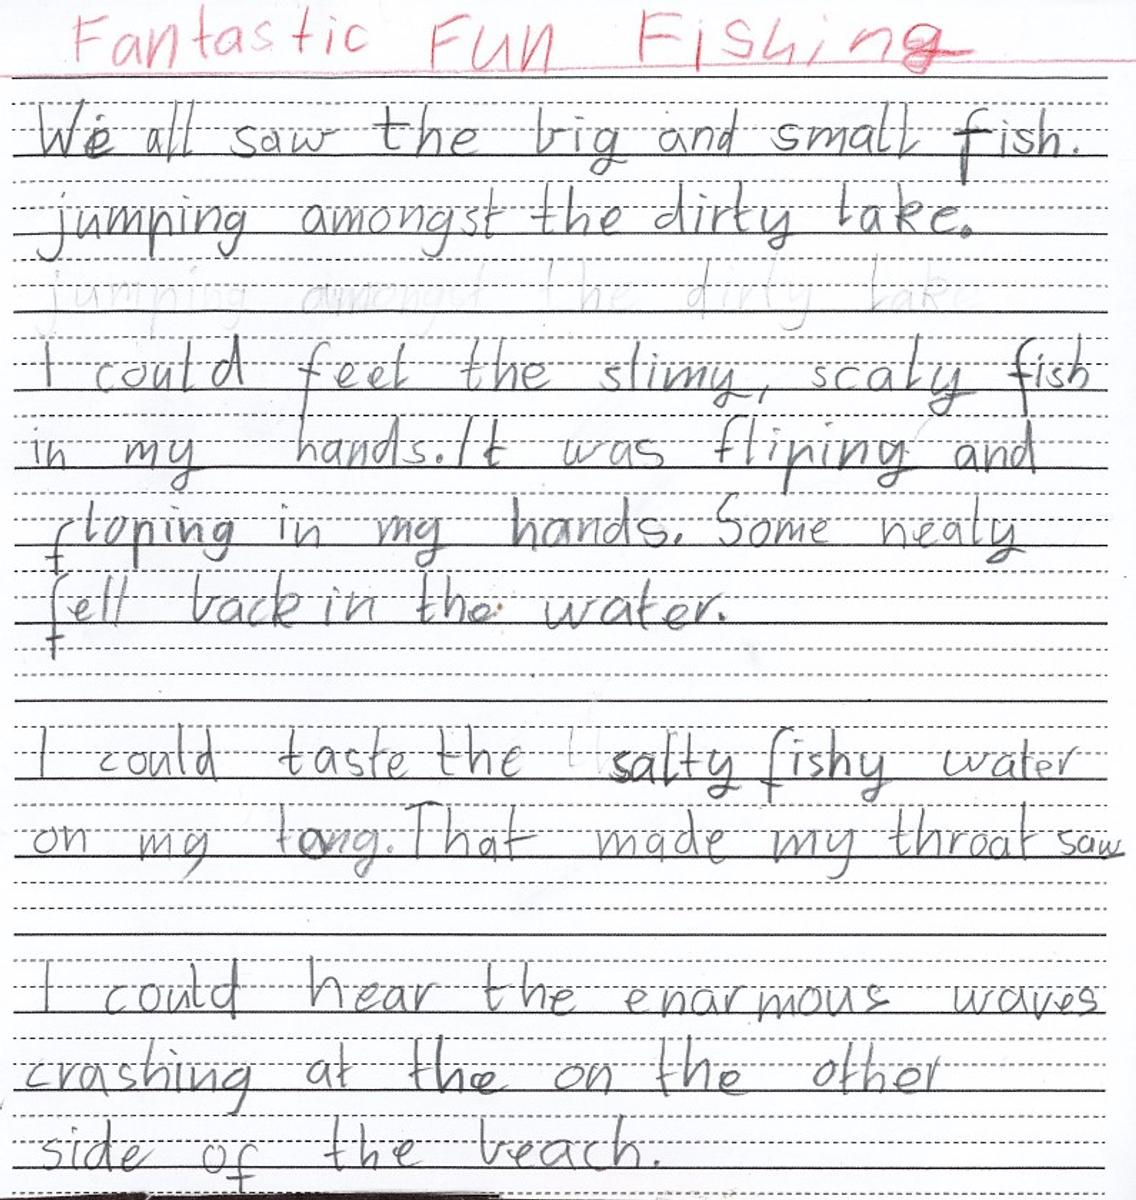 Fantastic Fun Fishing
We all saw the big and small fish.
jumping amongst the dirty lake.
jumping amongst the dirty lake
I could feel the slimy, scaly fish
in my hands. It was fliping and
floping in my hands. Some nealy
fell back in the water.
I could taste the salty fishy water
on my tong. That made my throat saw
I could hear the enarmous waves
crashing at the on the other
side of the beach.